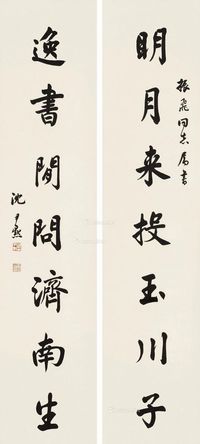 振飛同志屬書
明月来投玉川子
逸書閒問濟南生
沈尹默